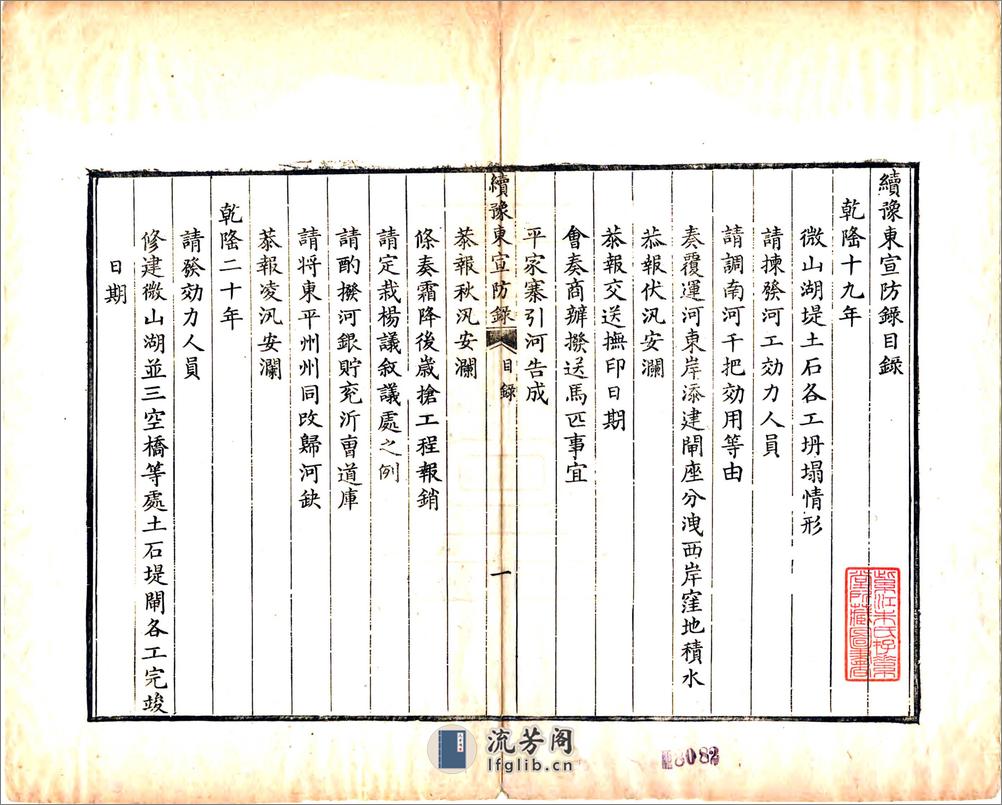 續豫東宣防錄目錄
乾隆十九年
微山湖堤土石各工坍塌情形
請揀發河工効力人員
請調南河千把効用等由
奏覆運河東岸添建閘座分洩西岸窪地積水
恭報伏汛安瀾
恭報交送撫印日期
會奏商辦撥送馬匹事宜
平家寨引河告成
續豫東宣防錄 目錄 一
恭報秋汛安瀾
條奏霜降後歲搶工程報銷
請定栽楊議敘議處之例
請酌撥河銀貯兖沂曺道庫
請將東平州州同改歸河缺
恭報凌汛安瀾
乾隆二十年
請發効力人員
修建微山湖並三空橋等處土石堤閘各工完竣
日期
紫江朱氏存素
堂所藏圖書
流芳阁
lfglib.cn